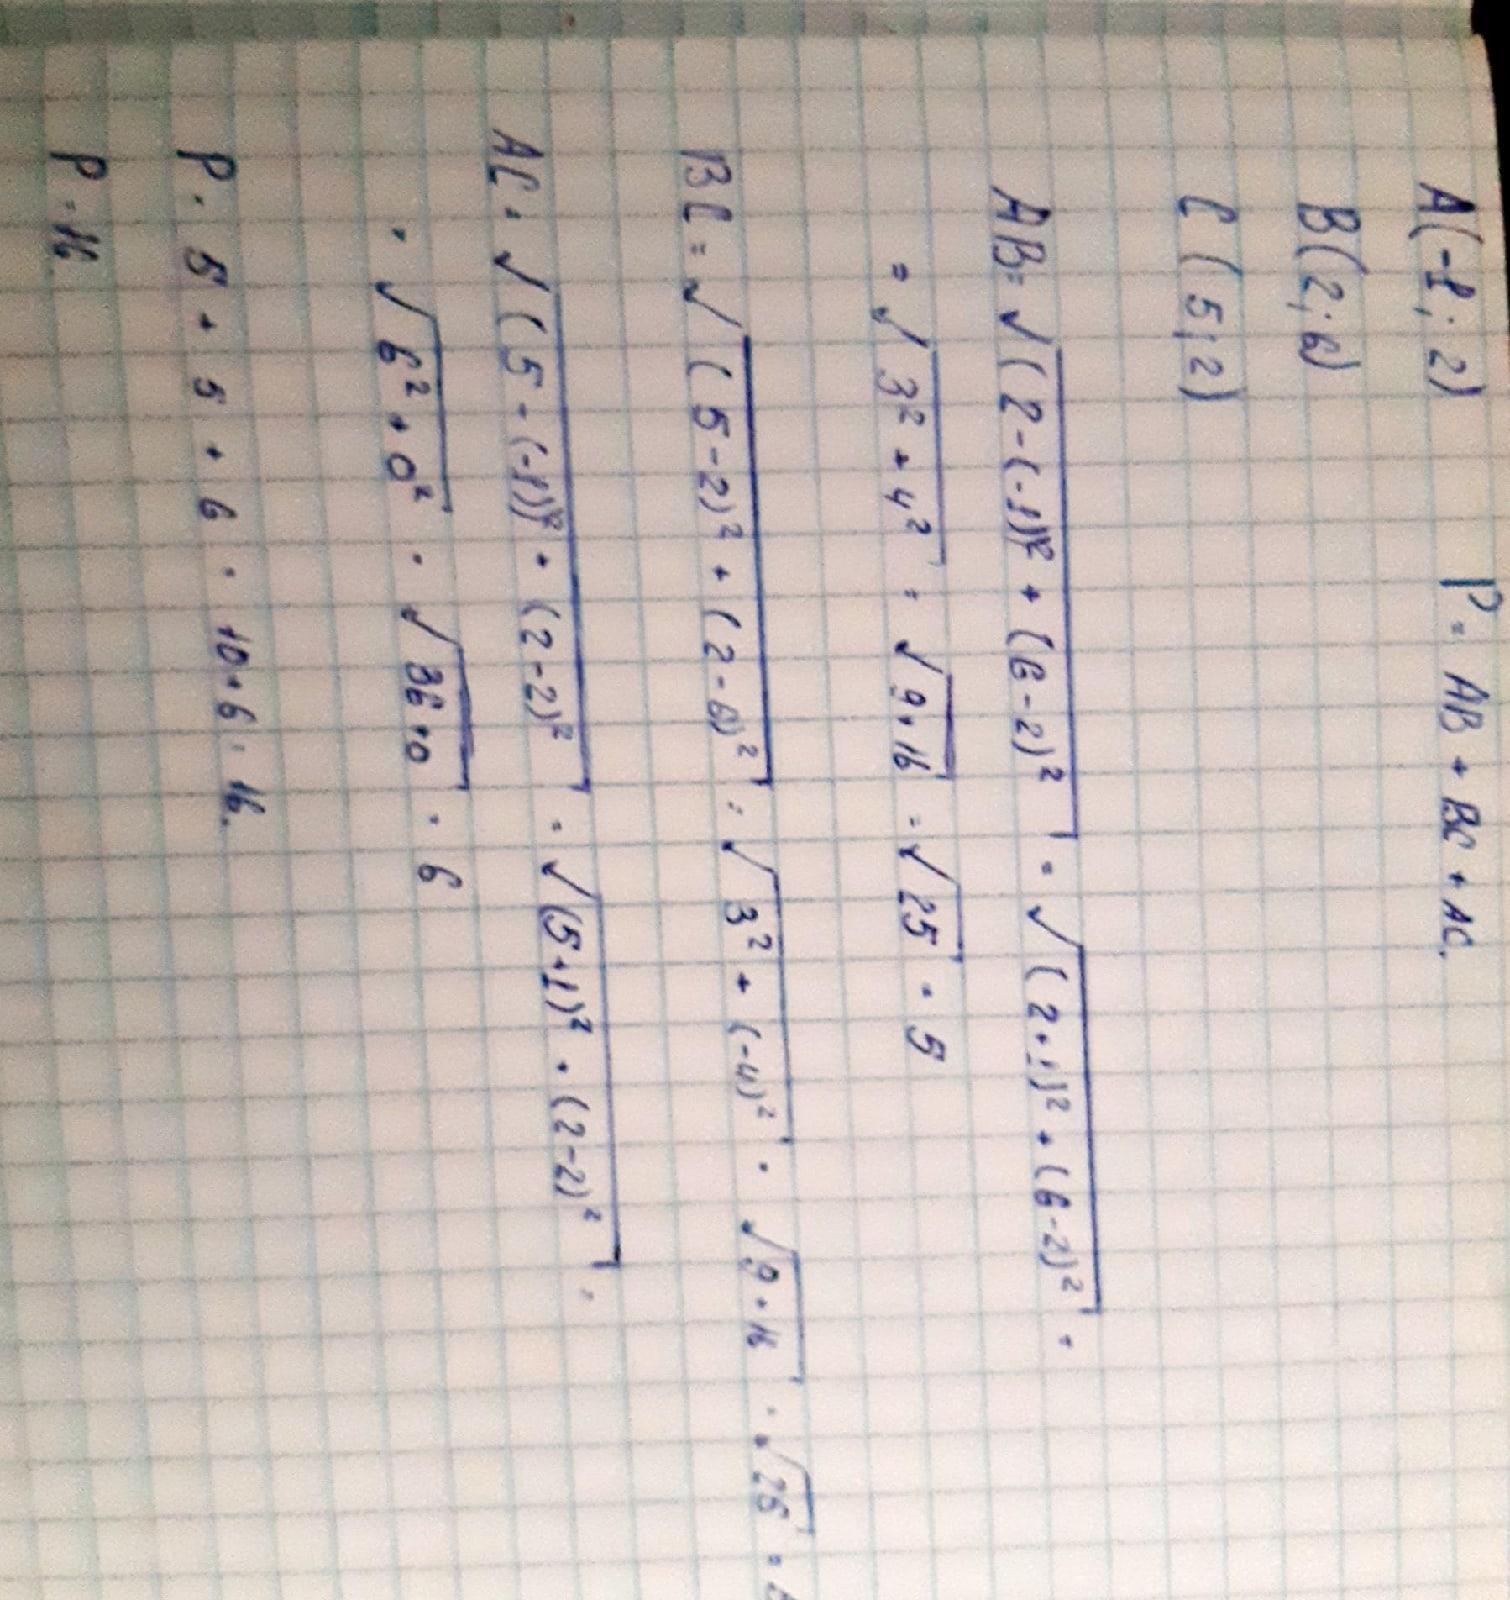 A(-1; 2) P = AB + BC + AC.
B(2; 6)
C(5; 2)
AB = √(2-(-1))² + (6-2)² = √(2+1)² + (6-2)² =
= √3² + 4² = √9+16 = √25 = 5
BC = √(5-2)² + (2-6)² = √3² + (-4)² = √9+16 = √25 =
AC = √(5-(-1))² + (2-2)² = √(5+1)² + (2-2)² =
= √6² + 0² = √36+0 = 6
P = 5 + 5 + 6 = 10+6 = 16.
P = 16